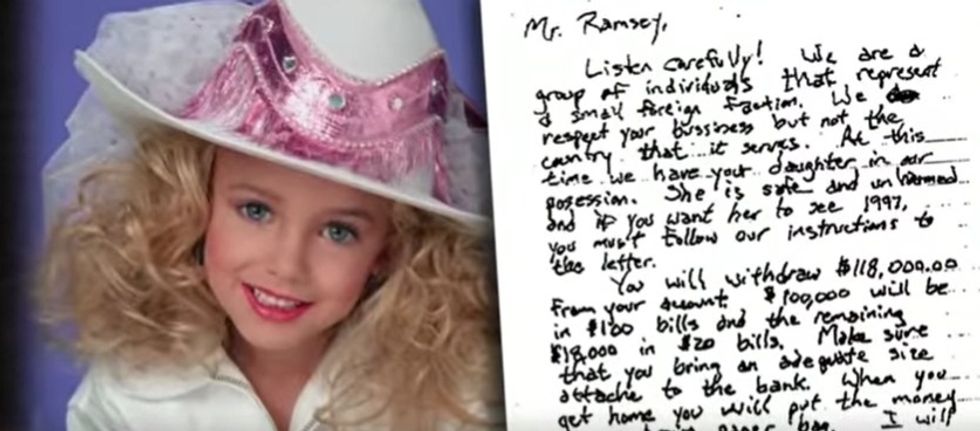 Mr. Ramsey,
Listen carefully! We are a
group of individuals that represent
a small foreign faction. We
respect your bussiness but not the
country that it serves. At this
time we have your daughter in our
posession. She is safe and unharmed
and if you want her to see 1997,
you must follow our instructions to
the letter.
You will withdraw $118,000.00
from your account. $100,000 will be
in $100 bills and the remaining
$18,000 in $20 bills. Make sure
that you bring an adequate size
attache to the bank. When you
get home you will put the money
paper bag. I will